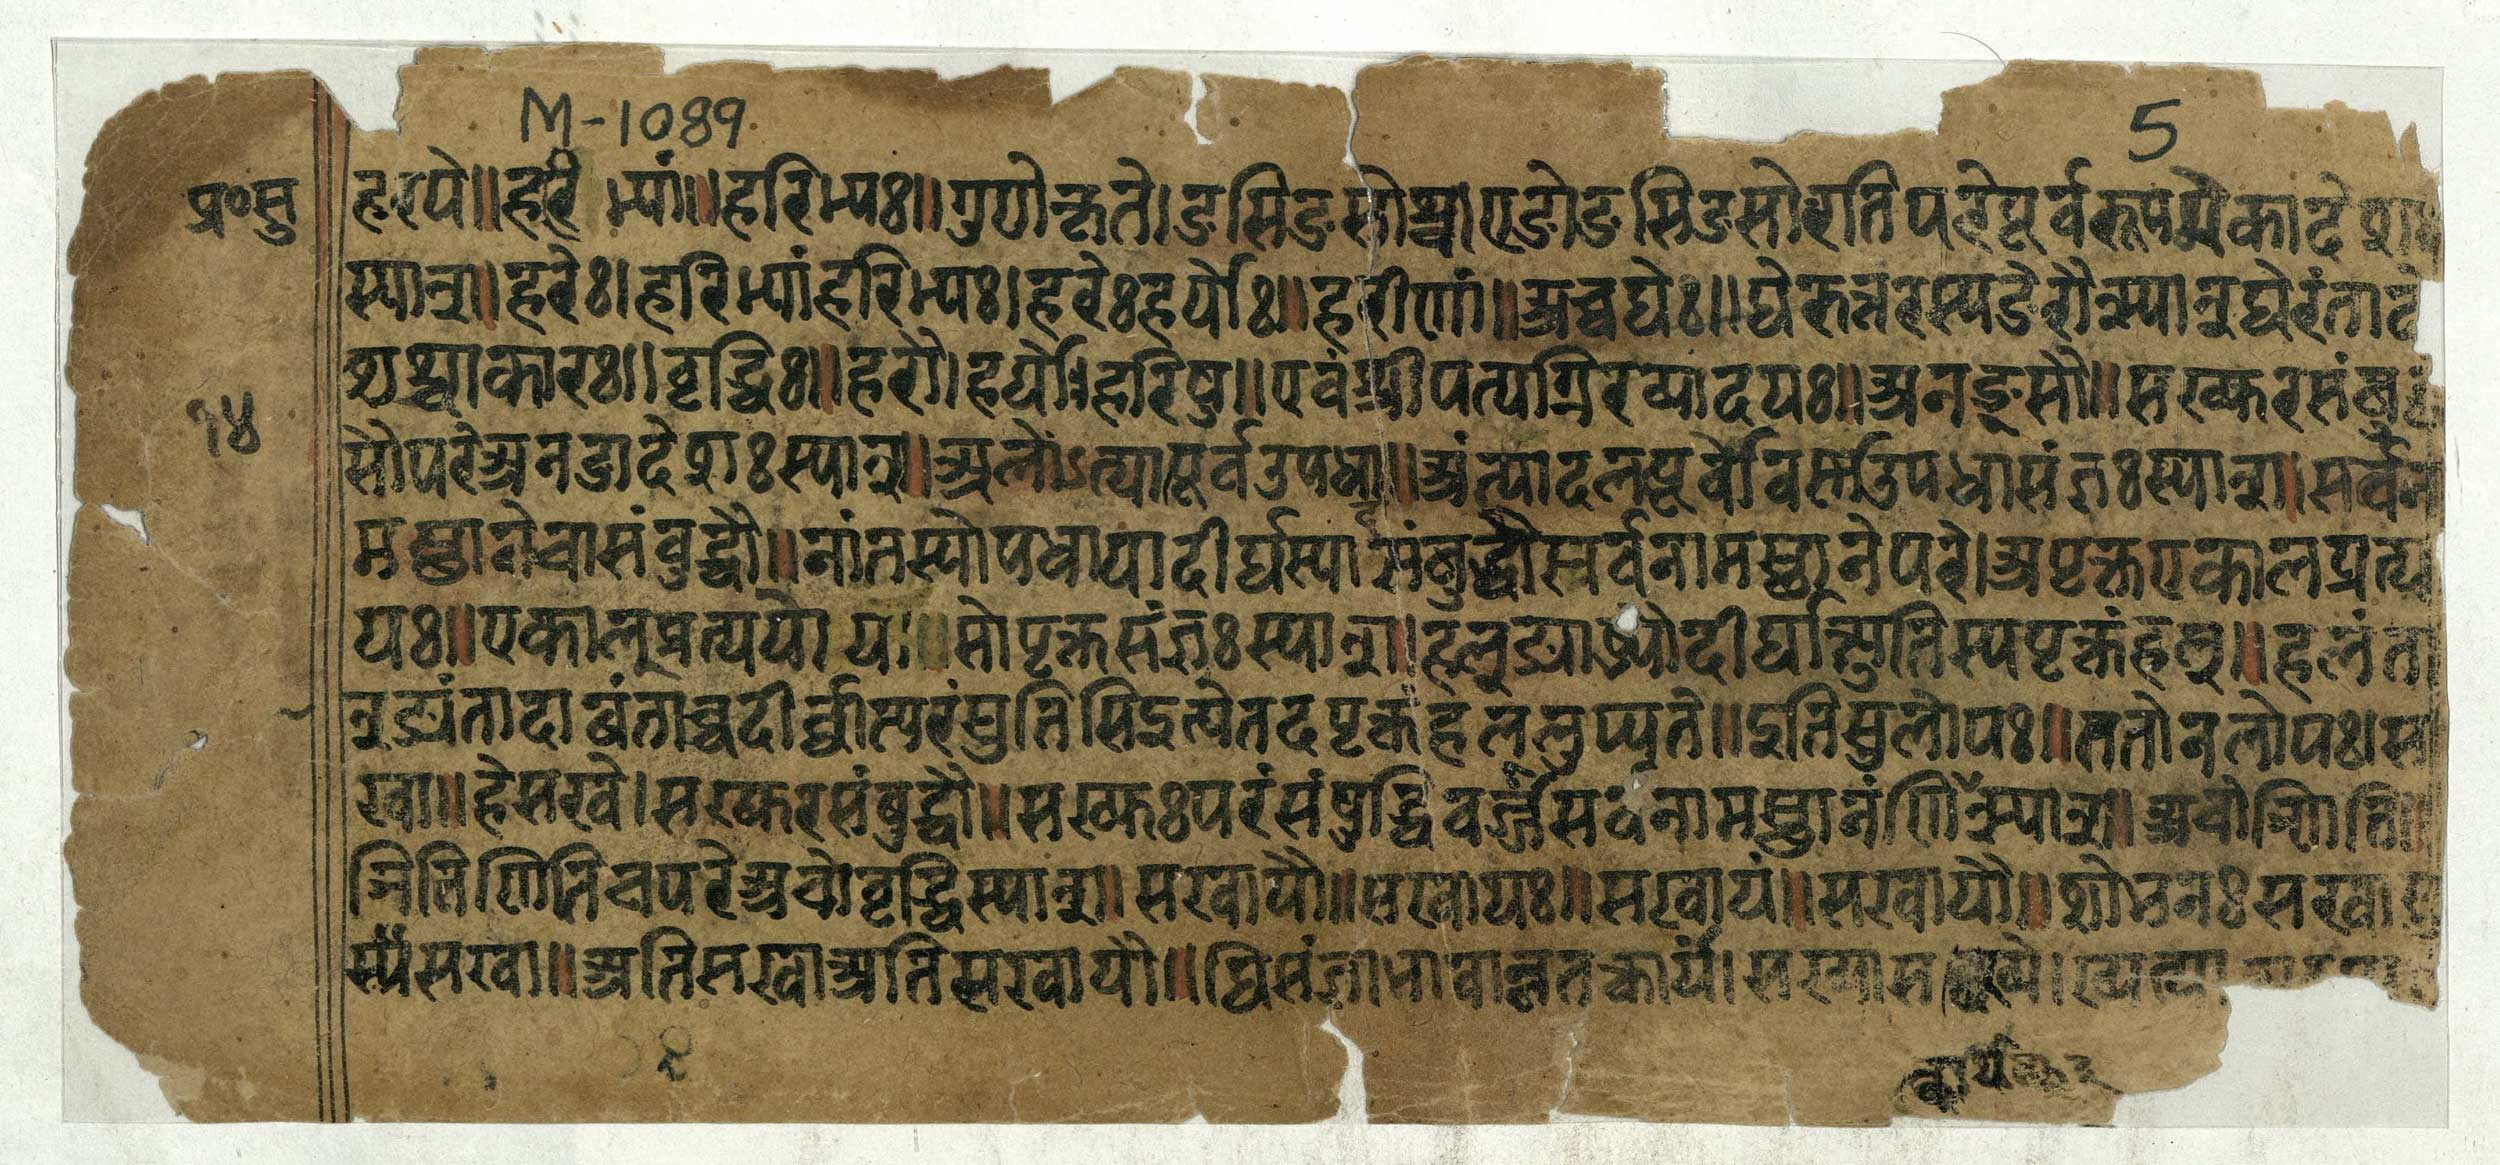 M-1089
5
प्र०सु
हरये॥हरिभ्यां॥हरिभ्यः॥गुणोकृते।ङसिङसोश्च।एङोङसिङसोरतिपरेपूर्वरूपमेकादेशः
स्यात्।हरेः।हरिभ्यांहरिभ्यः।हरेःहर्योः॥हरीणां॥अच्चघेः॥घेरुत्तरस्यङेरौत्स्यात्घेरंतादे
शश्चाकारः॥वृद्धिः॥हरौ।हर्योः।हरिषु॥एवंश्रीपत्यग्निरव्यादयः॥अनङ्सौ॥सख्युरसंबु
१४
सौपरेअनङादेशःस्यात्।अलोऽत्यापूर्वउपधा॥अंत्यादलपूर्वोवर्णउपधासंज्ञःस्यात्।सर्वना
मस्थानेचासंबुद्धौ॥नांतस्योपधायादीर्घस्यासंबुद्धौसर्वनामस्थानेपरे।अपृक्तएकालप्रत्य
यः॥एकाल्प्रत्ययोयः॥सोपृक्तसंज्ञःस्यात्।हल्ङ्याब्भ्योदीर्घात्सुतिस्यपृक्तंहल्॥हलंता
त्ङ्यंतादाबंताच्चदीर्घात्परंसुतिसिइत्येतदपृक्तहललुप्यते॥इतिसुलोपः॥ततोनलोपः।स
खा॥हेसखे।सख्युरसंबुद्धौ॥सख्युःपरंसंबुद्धिवर्जंसर्वनामस्थानंणित्स्यात्॥अचोञ्णिति॥
ञितिणितिचपरेअचोवृद्धिस्यात्।सखायौ॥सखायः॥सखायं॥सखायौ॥शोभनःसखासु
सखा॥अतिसखाअतिसखायौ॥घिसंज्ञाभावान्नतत्कार्यं।सख्यासख्ये।